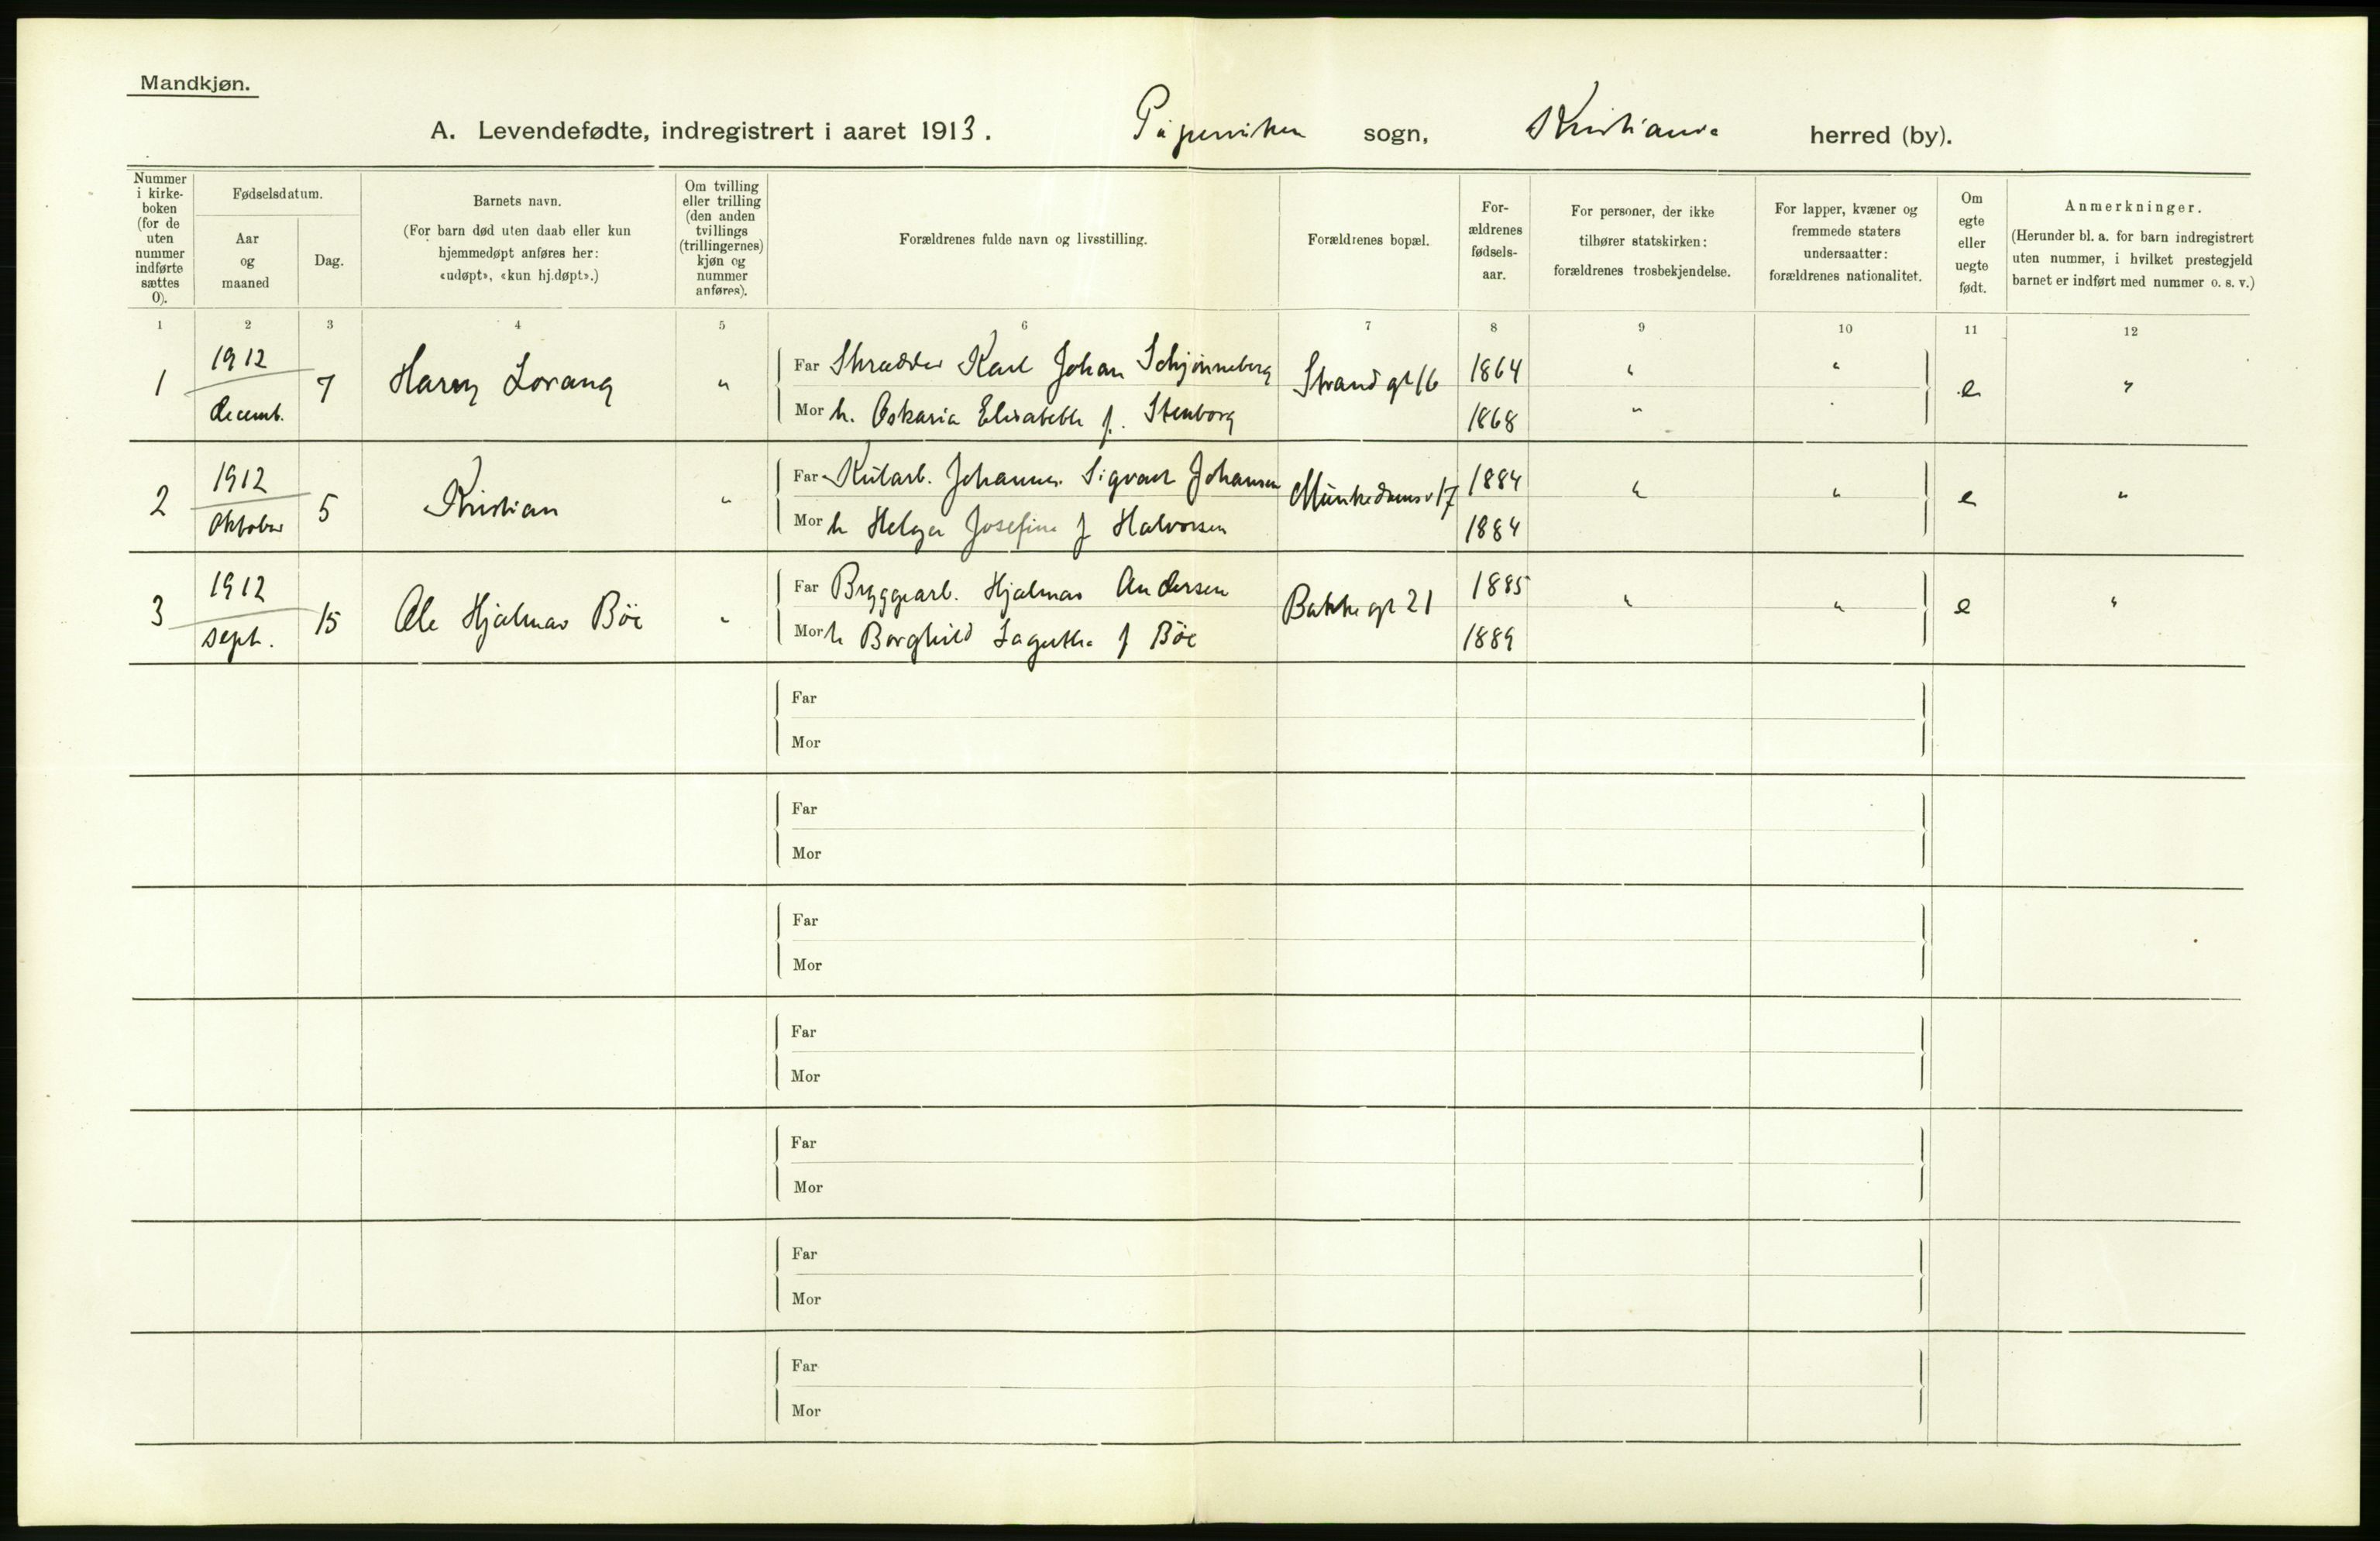 Mandkjøn.
A. Levendefødte, indregistrert i aaret 1913. Piperviken sogn, Kristiania herred (by).
Nummer i kirke-boken (for de uten nummer indførte sættes 0).
Fødselsdatum.
Aar og maaned
Dag.
Barnets navn.
(For barn død uten daab eller kun hjemmedøpt anføres her: «udøpt», «kun hj.døpt».)
Om tvilling eller trilling (den anden tvillings (trillingernes) kjøn og nummer anføres).
Forældrenes fulde navn og livsstilling.
Forældrenes bopæl.
For-ældrenes fødsels-aar.
For personer, der ikke tilhører statskirken: forældrenes trosbekjendelse.
For lapper, kvæner og fremmede staters undersaatter: forældrenes nationalitet.
Om egte eller uegte født.
Anmerkninger.
(Herunder bl. a. for barn indregistrert uten nummer, i hvilket prestegjeld barnet er indført med nummer o. s. v.)
1 2 3 4 5 6 7 8 9 10 11 12
1 1912 decemb. 7 Harry Lorang "
Far Skrædder Karl Johan Schjønneberg Strandgt 16 1864 " "
Mor h. Oskaria Elisabeth f. Stenborg 1868 " " e "
2 1912 Oktober 5 Kristian "
Far Kularb. Johannes Sigvart Johansen Munkedamsv 17 1884 " "
Mor h Helga Josefine f Halvorsen 1884 e "
3 1912 Sept. 15 Ole Hjalmar Bøe "
Far Bryggearb. Hjalmar Andersen Bakkegt 21 1885 " "
Mor h Borghild Lagertha f Bøe 1889 e "
Far
Mor
Far
Mor
Far
Mor
Far
Mor
Far
Mor
Far
Mor
Far
Mor